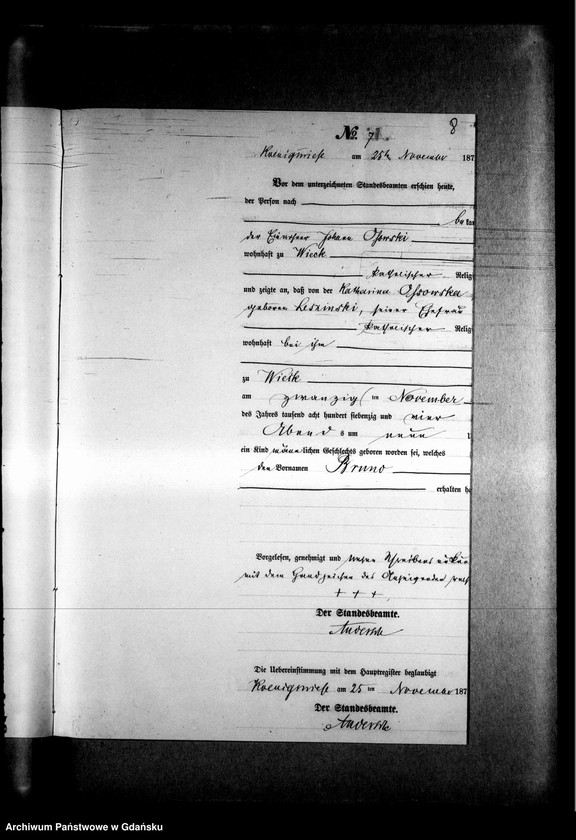 8
No. 7
Koenigswiese am 25ten November 187
Vor dem unterzeichneten Standesbeamten erschien heute,
der Person nach
bekan
der Johann Ossowski
wohnhaft zu Wieck
katholischer Relig
und zeigte an, daß von der Katharina Ossowska
geborenen Lesinski, seiner Ehefrau
katholischer Relig
wohnhaft bei ihm
zu Wieck
am zwanzig ten November
des Jahres tausend acht hundert siebenzig und vier
Abends um neun
ein Kind männlichen Geschlechts geboren worden sei, welches
den Vornamen Bruno
erhalten ha
Vorgelesen, genehmigt und wegen Schreibens
mit dem Handzeichen des Anzeigenden
+ + +
Der Standesbeamte.
Die Uebereinstimmung mit dem Hauptregister beglaubigt
Koenigswiese am 25 ten November 187
Der Standesbeamte.
Archiwum Państwowe w Gdańsku